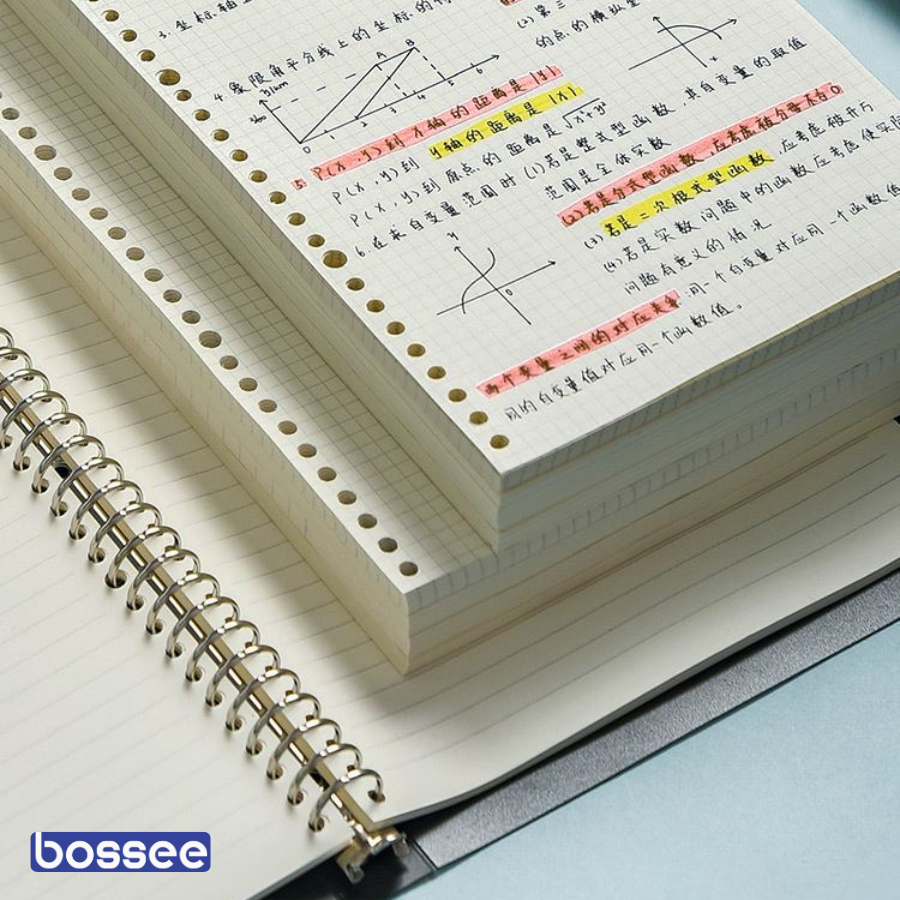 3. 坐标轴上
4 象限角平分线上的坐标的特
5. P(x,y)到x轴的距离是|y|
P(x,y)到 y轴的距离是|x|
P(x,y)到原点的距离是√x²+y²
6. 在求自变量范围时 (1)若是整式型函数,其自变量的取值
范围是全体实数
(2)若是分式型函数,应考虑使分母不为0
(3)若是二次根式型函数,应考虑被开方
(4)若是实数问题中的函数应考虑使实际
问题有意义的情况
两个变量之间的对应关系:同一个自变量对应同一个函数值
同的自变量值对应同一个函数值。
(2)第三
的点的横纵坐
A
B
1 2 3 4 5 6
0
y
0
x
bossee